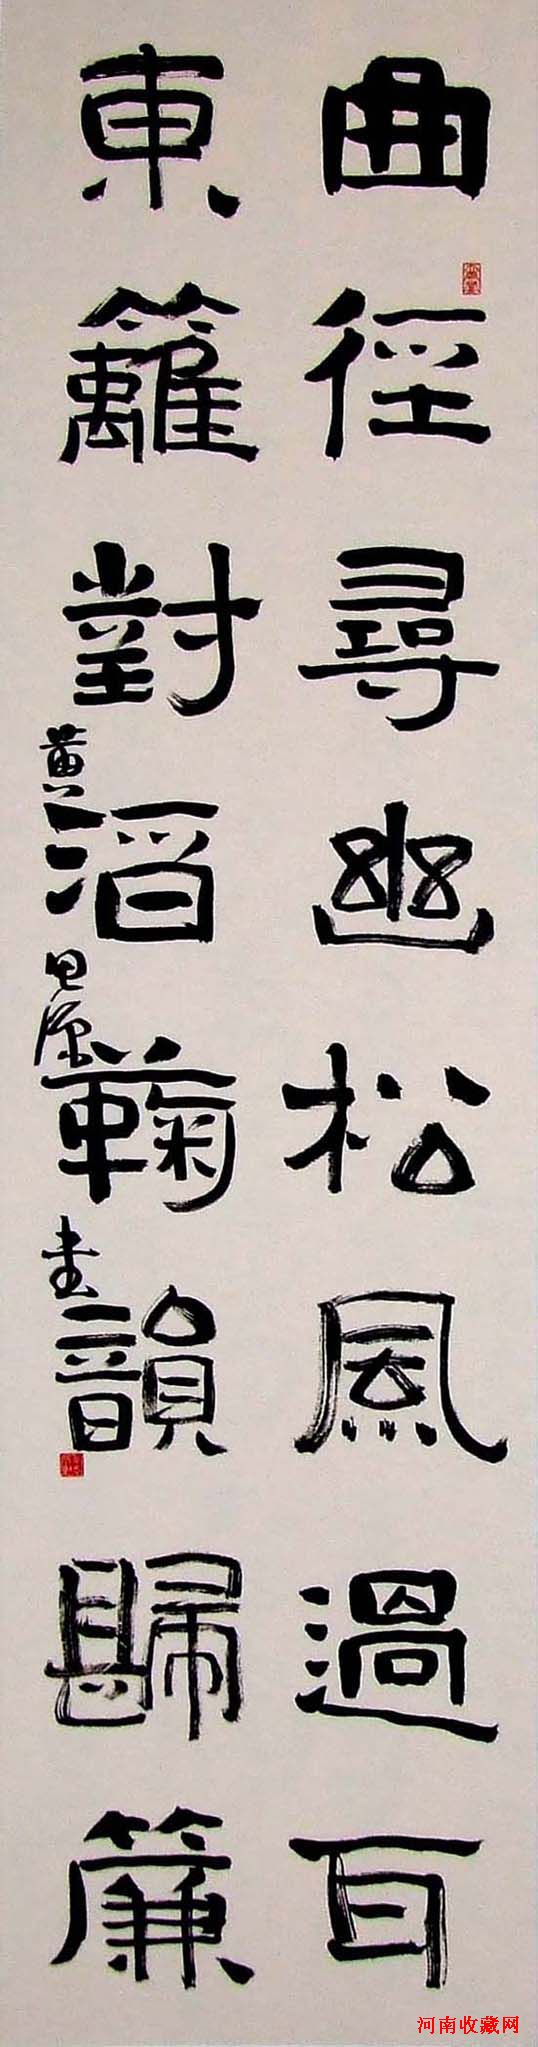 曲徑尋幽松風過耳
東籬對酒鞠韻歸簾
黄 書
河南收藏网